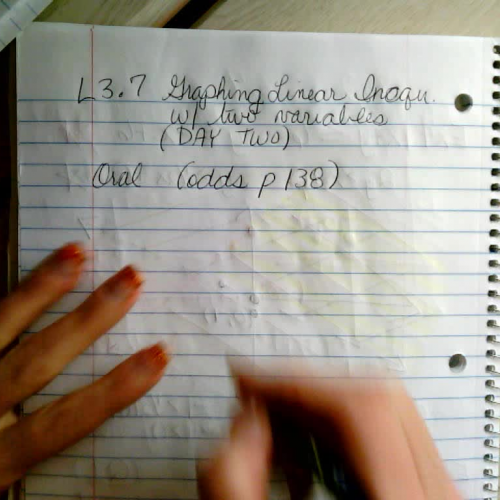 L3.7 Graphing Linear Inequ.
w/ two variables
(DAY TWO)
Oral (odds p 138)